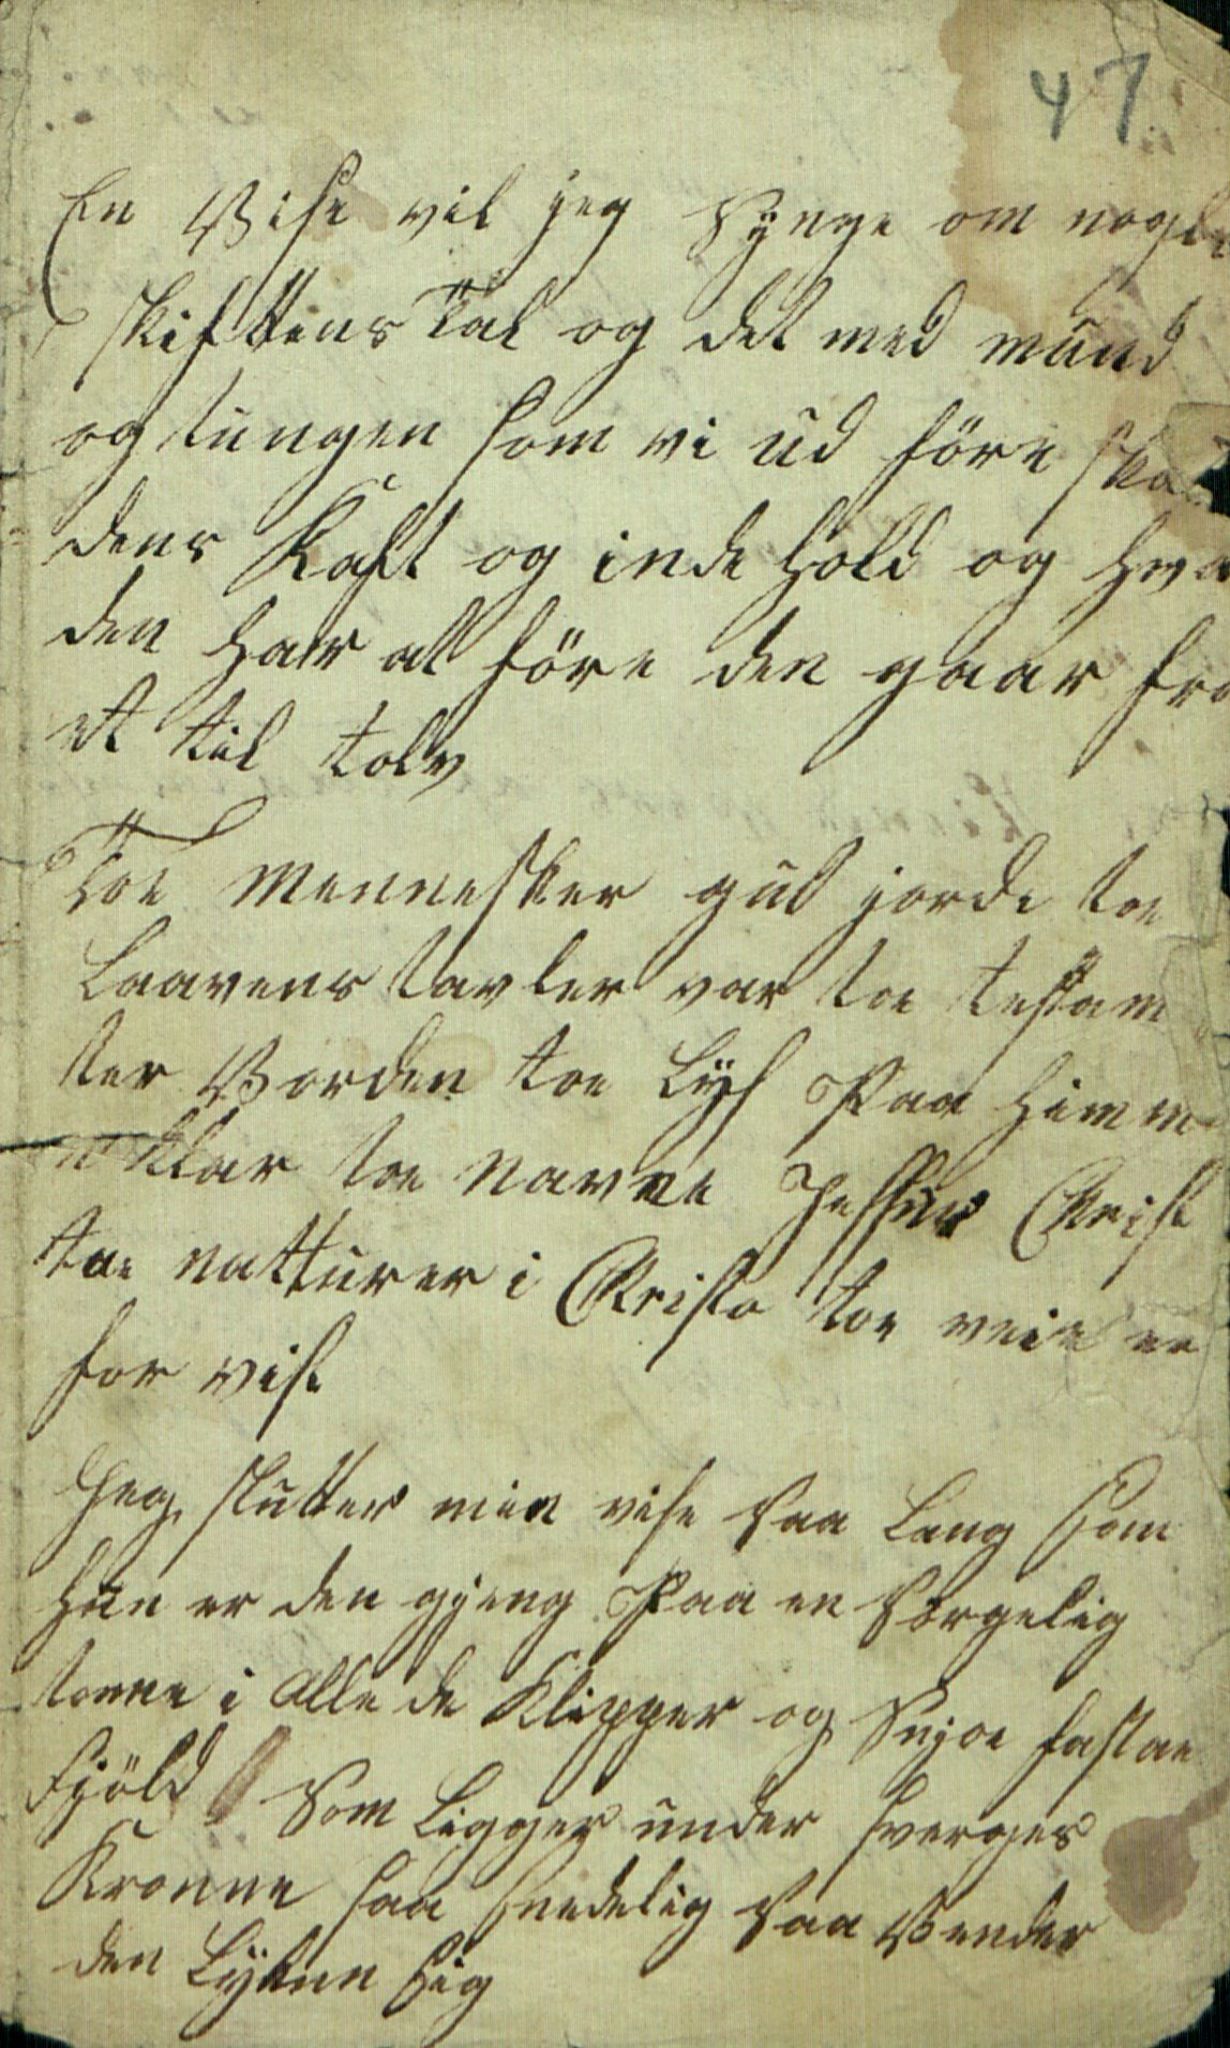 47
En Vise vil jeg Synge om nogle
skifttens Tal og det med mund
og tungen som vi ud före ska
dens Kaft og inde hold og hva
den har at före den gaar fra
et til tolv
Toe Mennesker gud jorde toe
Laavens tavler var toe testam
ter Vorden toe Lys Paa Himm
klar toe Navne Jessus Crist
toe natturer i Christo toe veie er
for vist
Jeg slutter min vise Saa Lang Som
hun er den gjeng Paa en Sørgelig
tonne i Alle de Klipper og Snjoe fastae
Fjöld Som Ligger under Sverges
Kronne saa Snedelig Saa Vender
den Lykken Sig